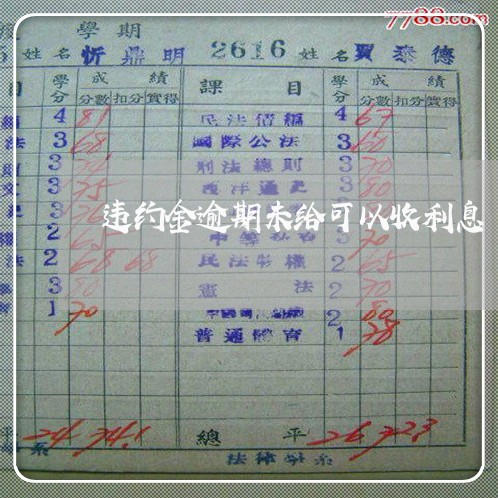 7788.com
學期
姓名 忻鼎明 2616 姓名 賈泰德
目 學分 成績 課目 學分 成績
分數 扣分 實得 分數 扣分 實得
4 81 民法債編 4 67
法 3 68 國際公法 3 60
3 刑法總則 3 70
3 75 西洋通史 3 80
违约金逾期未给可以收利息
2 65 3 70
法 2 68 68 民法物權 2 65
3 80 憲法 2 70
1 70 2 80
普通體育 1 78
平 24 74.1 總平 26 72.3
系 法律學系